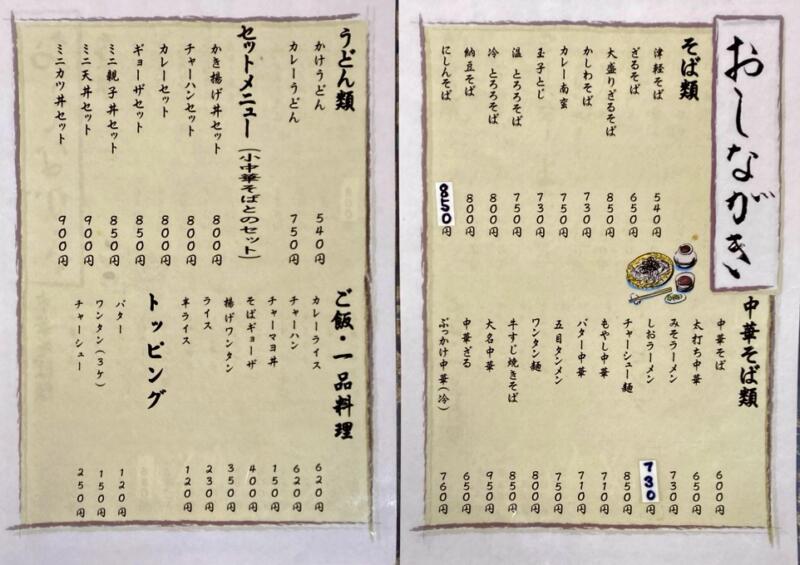 おしながき
そば類
津軽そば 540円
ざるそば 650円
大盛りざるそば 850円
かしわそば 730円
カレー南蛮 750円
玉子とじ 730円
温 とろろそば 750円
冷 とろろそば 800円
納豆そば 800円
にしんそば 850円
中華そば類
中華そば 600円
太打ち中華 650円
みそラーメン 730円
しおラーメン 730円
チャーシュー麺 850円
もやし中華 710円
バター中華 710円
五目タンメン 750円
ワンタン麺 800円
牛すじ焼きそば 850円
大名中華 950円
中華ざる 650円
ぶっかけ中華(冷) 760円
うどん類
かけうどん 540円
カレーうどん 750円
セットメニュー(小中華そばとのセット)
かき揚げ丼セット 800円
チャーハンセット 800円
カレーセット 800円
ギョーザセット 850円
ミニ親子丼セット 850円
ミニ天丼セット 900円
ミニカツ丼セット 900円
ご飯・一品料理
カレーライス 620円
チャーハン 620円
チャーマヨ丼 150円
そばギョーザ 400円
揚げワンタン 350円
ライス 230円
半ライス 120円
トッピング
バター 120円
ワンタン(3ケ) 150円
チャーシュー 250円